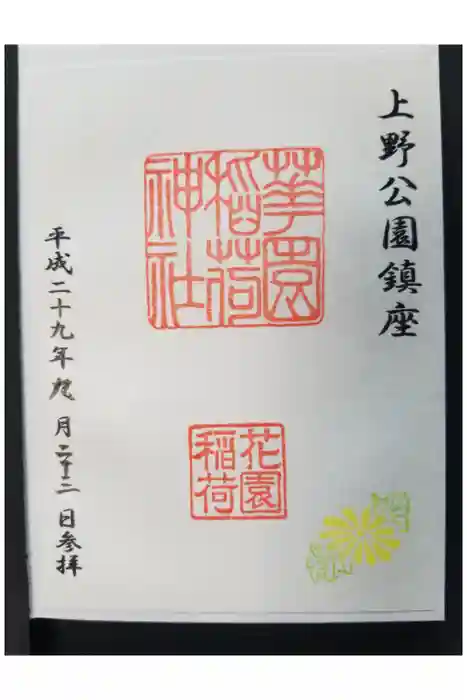 上野公園鎮座
華園
稲荷
神社
花園
稲荷
平成二十九年九月二十二日参拝